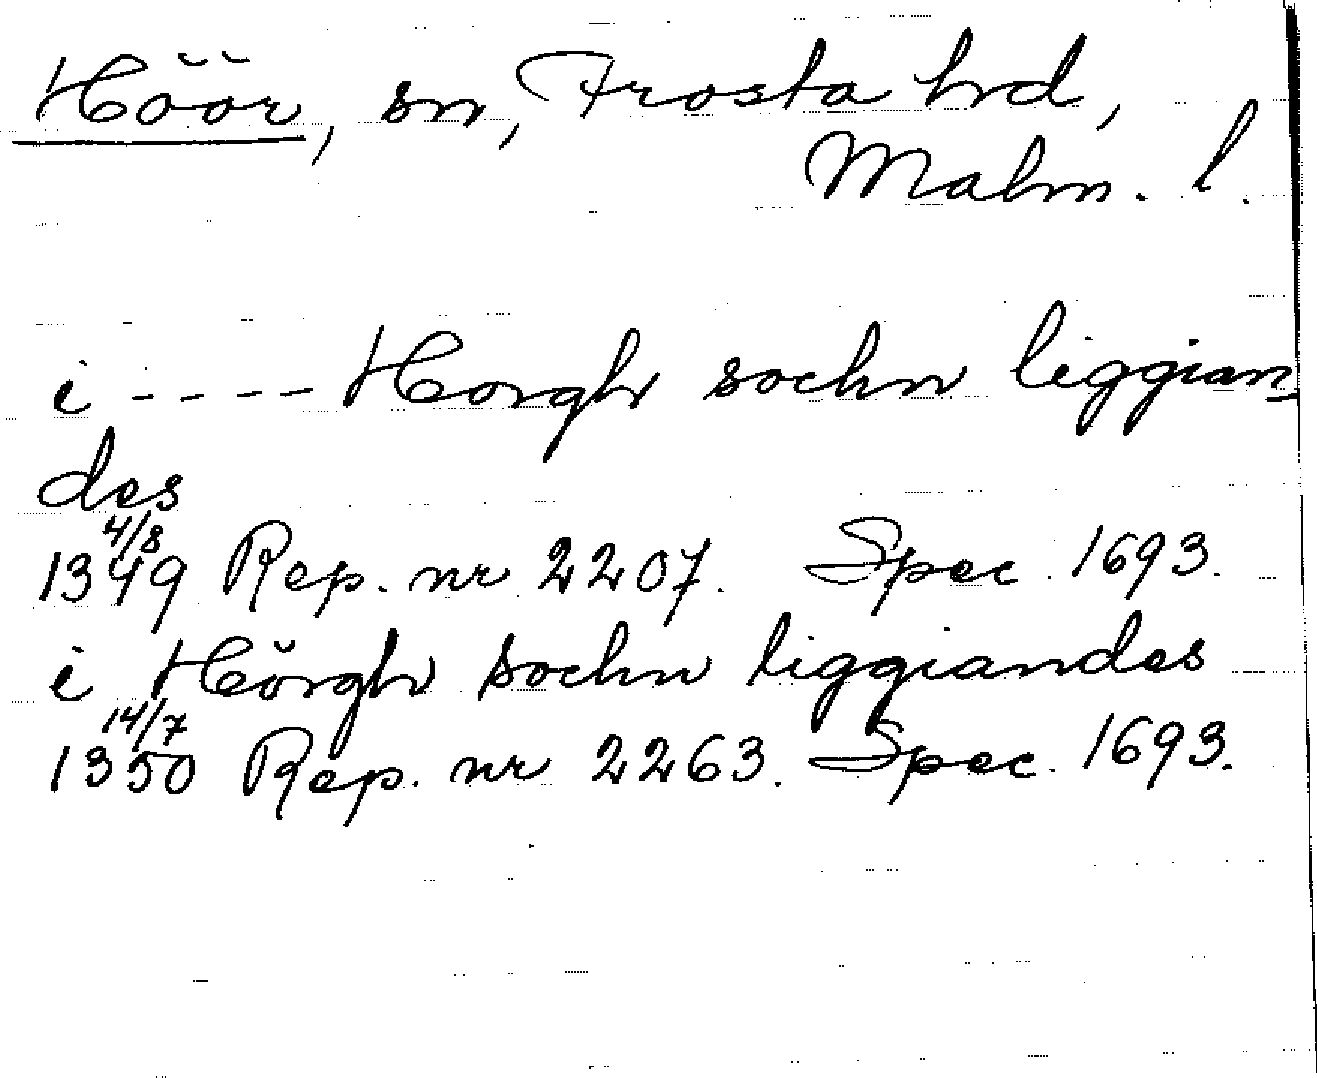 Höör, sn, Frosta hd,
Malm. l.
i ---- Horgh sochn liggian-
des
4/8
1349 Rep. nr 2207. Spec. 1693.
i Hörgh sochn liggiandes
14/7
1350 Rep. nr 2263. Spec. 1693.